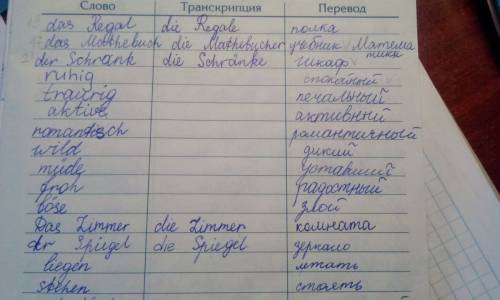 Слово Транскрипция Перевод
das Regal die Regale полка
das Mathebuch die Mathebücher учебник матема
тики
der Schrank die Schränke шкаф
ruhig спокойный
traurig печальный
aktive активный
romantisch романтичный
wild дикий
müde уставший
froh радостный
böse злой
Das Zimmer die Zimmer комната
der Spiegel die Spiegel зеркало
liegen лежать
stehen стоять